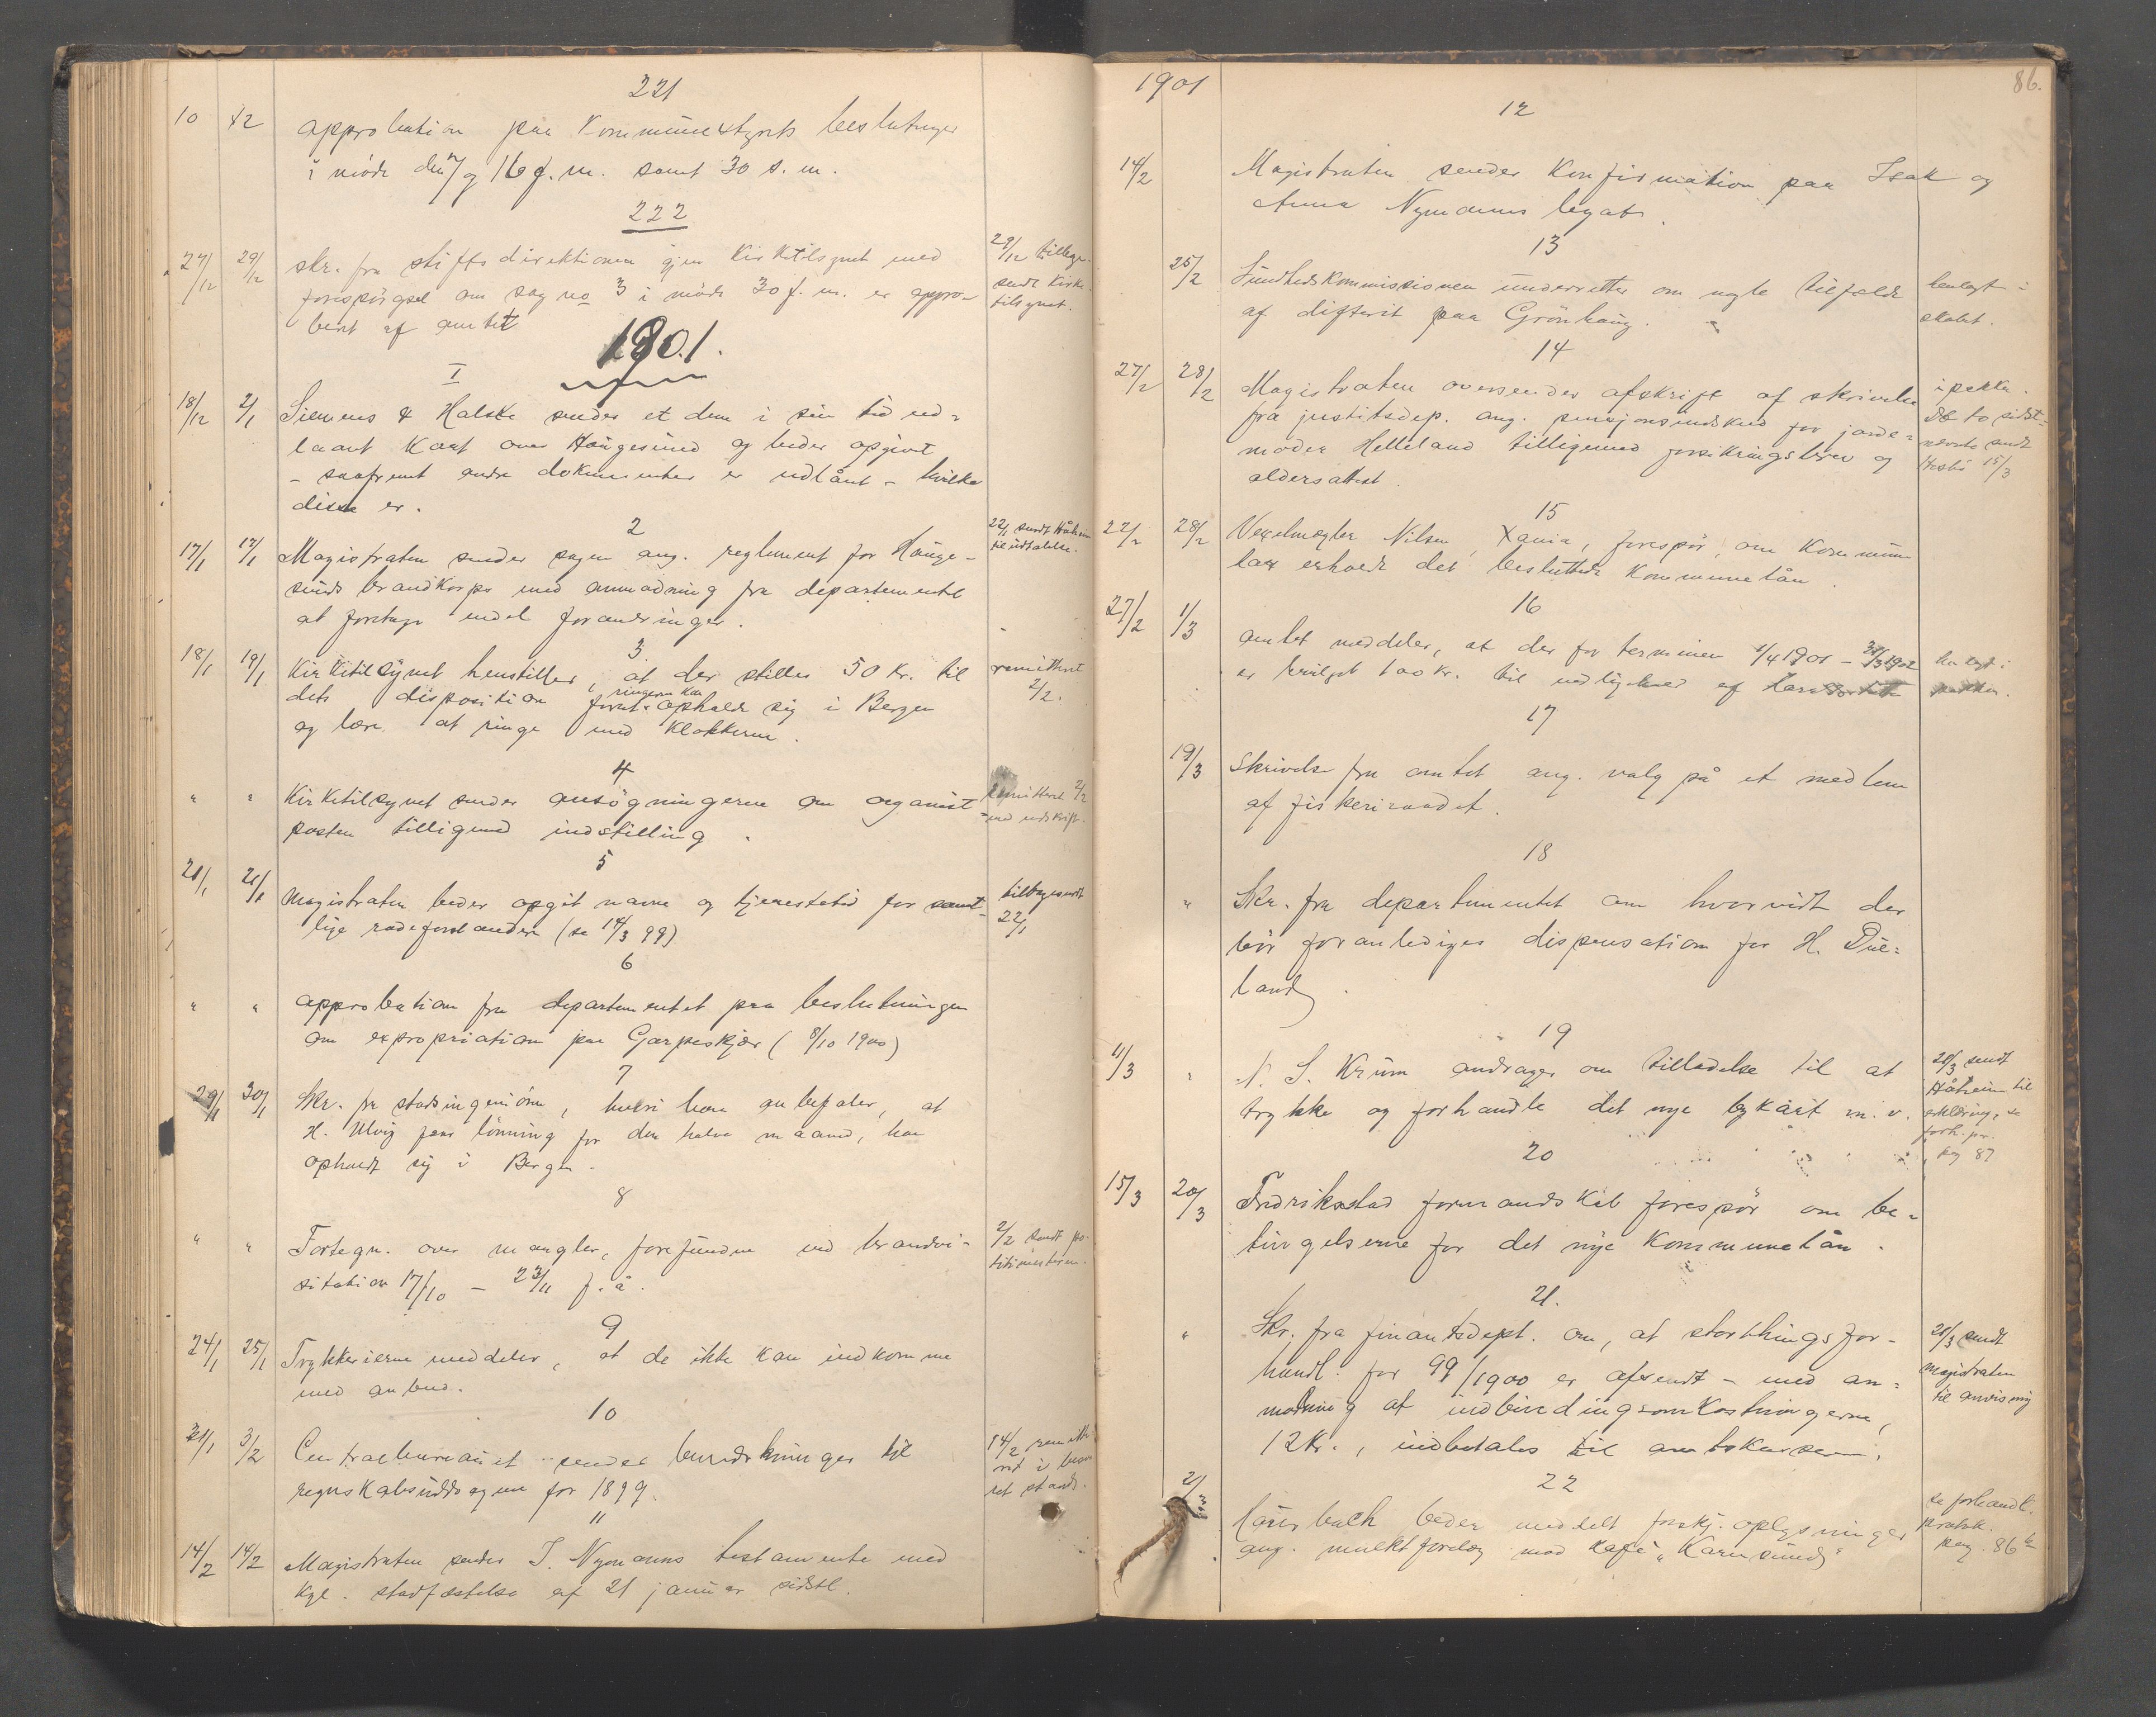 221
10 12 approbation paa Kommunestyrets beslutninger
i møde den 7 og 16 f. m. samt 30 s. m.
222
27/12 29/12 skr. fra stiftsdirektionen gjen Kirketilsynet med 29/12 tillige
forespörgsel om sag no 3 i møde 30 f. m. er appro- sendt Kirke-
beret af amtet tilsynet.
1901.
I
18/12 2/1 Siemens & Halske sender et dem i sin tid ud-
laant Kart over Haugesund og beder opgivet
- saafremt andre dokumenter er udlånt - hvilke
disse er.
2
17/1 17/1 Magistraten sender sagen ang. reglement for Hauge- 22/1 sendt Håheim
sunds brandkorps med anmodning fra departementet til udtalelse.
at foretage endel forandringer.
3
18/1 19/1 Kirketilsynet henstiller, at der stilles 50 Kr. til remitteret
dets disposition forat ringeren kan opholde sig i Bergen 2/2.
og lære at ringe med Klokkerne.
4
" " Kirketilsynet sender ansögningerne om organist- remitteret 2/2
posten tilligemed indstilling. med udskrift.
5
20/1 21/1 Magistraten beder opgit navne og tjenestetid for samt- tilbagesendt
lige rodeforstandere (se 14/3 99) 22/1
6
" " approbation fra departementet paa beslutningen
om expropriation paa Garpeskjær (8/10 1900)
7
29/1 30/1 Skr. fra stadsingeniören, hvori han anbefaler, at
H. Ulvig faar lönning for den halve maaned, han
opholdt sig i Bergen.
8
" " Fortegn. over mangler, forefundne ved brandvi- 2/2 sendt po-
sitation 17/10 - 23/11 f. å. litimesteren.
9
24/1 25/1 Trykkerierne meddeler, at de ikke kan indkomme
med anbud.
10
31/1 3/2 Centralbureauet sender bemærkninger til 14/2 remitte-
regnskabsuddragene for 1899. ret i besva-
ret stand.
11
14/2 14/2 Magistraten sender I. Nymanns testamente med
Kgl. stadfæstelse af 21 januar sidstl.
1901
86.
12
14/2 Magistraten sender Konfirmation paa Isak og
Anna Nymanns legat.
13
25/2 Sundhedskommissionen underretter om nogle tilfælde henlagt i
af difterit paa Grönhaug. skabet.
14
27/2 28/2 Magistraten oversender afskrift af skrivelse i pakke.
fra justitsdep. ang. pensjonsindskud for jorde- De to sidst-
moder Helleland tilligemed forsikringsbrev og nævnte sendt
aldersattest. 15/3
15
22/2 28/2 Vexelmægler Nilsen, Xania, forespör, om Kommun
lar erholde det besluttede Kommunelån.
16
27/2 1/3 amtet meddeler, at der for terminen 1/4 1901 - 31/3 1902 henlagt i
er bevilget 100 Kr. til vedligehold af pakken.
17
19/3 Skrivelse fra amtet ang. valg på et medlem
af fiskeriraadet.
18
" Skr. fra departementet om hvorvidt der
bör foranlediges dispensation for H. Due-
land.
19
11/3 " N. S. Krüm andrager om tilladelse til at 20/3 sendt
trykke og forhandle det nye bykart m. v. Håheim til
erklæring, se
forh. pr.
pag 87
20
15/3 20/3 Fredrikstad formandskab forespör om be-
tingelserne for det nye Kommunelån.
21.
" Skr. fra finantsdept. om, at storthingsfor- 20/3 sendt
handl. for 99/1900 er afsendt - med an- magistraten
modning at indbindingsomkostningerne, til anvisning
12 Kr., indbetales til amtskassen.
22
2/3 beder meddelt forskj. oplysninger se forhandl.
ang. mulktforelæg mod Kafé "Karmsund" protok.
pag. 86